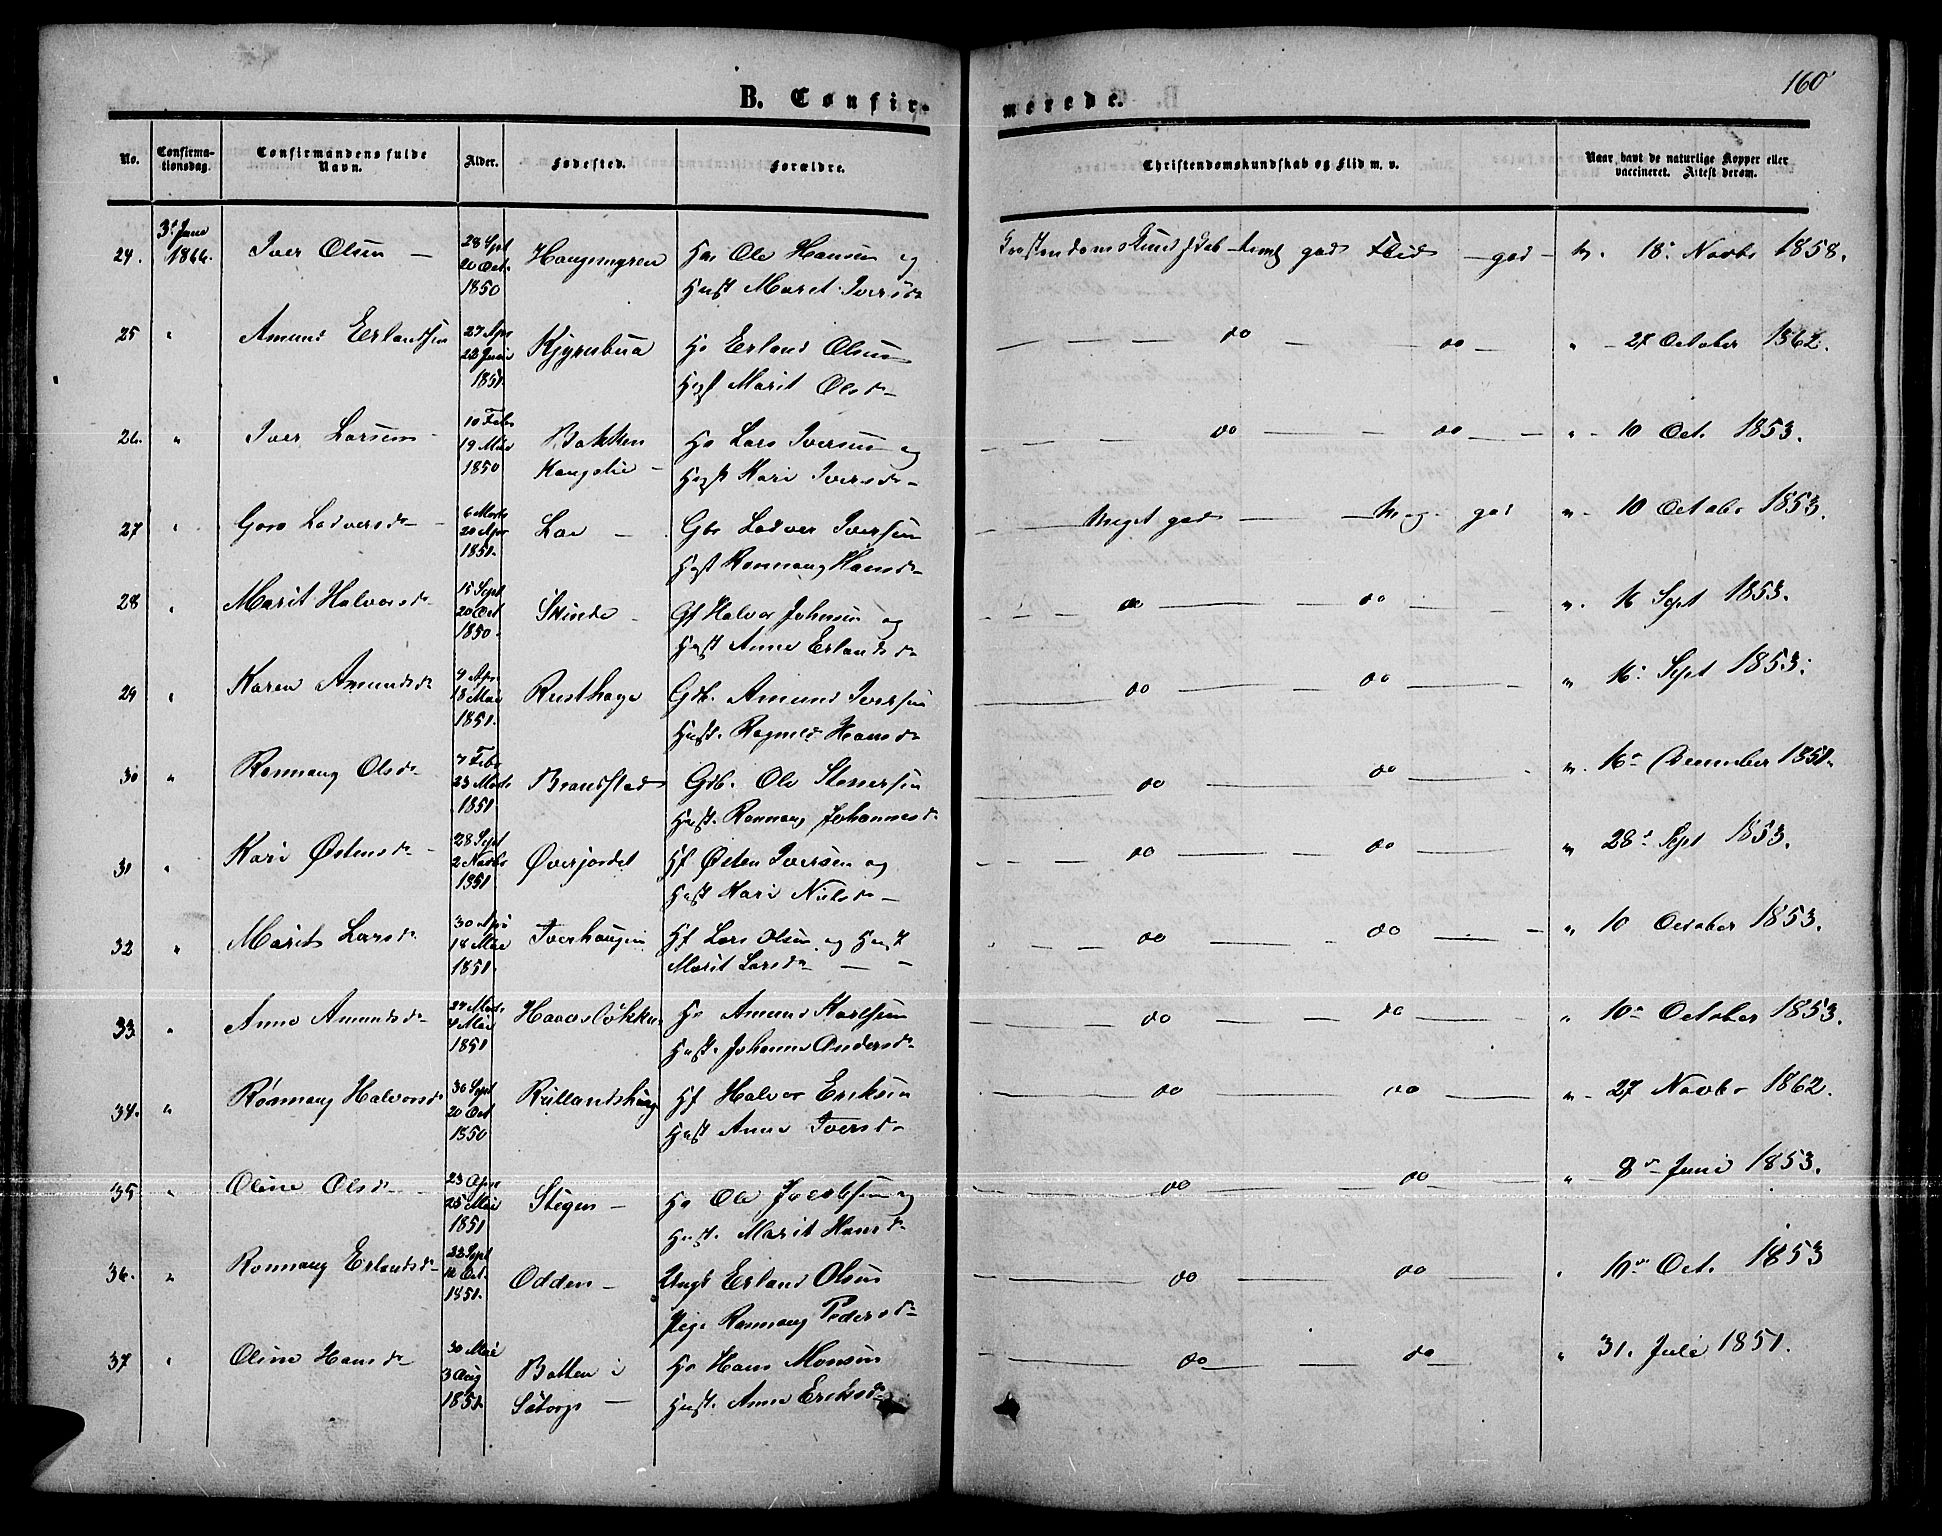 160
B. Confirmerede.
No.
Confirma-
tionsdag.
Confirmandens fulde
Navn.
Alder.
Fødested.
Forældre.
Christendomskundskab og Flid m. v.
Naar havt de naturlige Kopper eller
vaccineret. Attest derom.
24. 3d Juni 1866. Iver Olsen — 28 Spt 20 Oct. 1850 Haugsmyren Hs Ole Hansen og
Hust Marit Iversd.
temt god Flid — god — 18. Novbr 1858.
25 " Amund Erlandsen 27 Apr 22 Juni 1851. Kjyrnbua Hs Erland Olsen
Hust Marit Olsd.
do do " 27 October 1862.
26. " Iver Larsen 10 Feb. 19 Mai 1850 Bakken Hs Lars Iversen og
Haugslie — Hust Kari Iversd.
do do " 10 Oct. 1853.
27 " Goro Lodversd. 6 Marts 20 Apr 1851. Loe — Gbr Lodver Iversen
Hust Ronnaug Hansd.
Meget god Meg. god " 10 Octobr 1853.
28 " Marit Halvorsd. 15 Sept 20 Oct 1850. Skinde Gf Halvor Johnsen og
Hust Anne Erlandsd.
do do " 16 Sept 1853.
29 " Karen Amundsd. 4 Apr. 18 Mai 1851. Rusthage Gdb. Amund Iversen
Hust. Ragnild Hansd.
do do " 16. Sept 1853.
30 " Ronnaug Olsd. 7 Febr 23 Marts 1851 Brandstad Gdb. Ole Stenersen
Hust. Ronnaug Johannesd.
do do " 16. December 1851.
31 " Kari Østensd. 28 Sept 2 Novbr 1851 Øverjordet Hf Østen Iversen og
Hust Kari Nielsd. —
do do " 28. Sept 1853.
32 " Marit Larsd. 30 Apr 18 Mai 1851. Iverhaugen Hf Lars Olsen og Hust
Marit Larsd. — —
do do " 10 October 1853.
33. " Anne Amundsd. 27 Marts 4 Mai 1851 Haaveløkken Hs Amund Karlsen
Hust. Johanne Andersd.
do do " 10. October 1853.
34. " Rønnaug Halvorsd. 30 Sept 20 Oct 1850 Rullandshaug Hf Halvor Eriksen
Hust Anne Iversd.
do do " 27 Novbr 1862.
35 " Oline Olsd. 23 Apr. 25 Mai 1851 Stegen — Hs Ole Jacobsen og
Hust. Marit Hansd.
do do " 8. Juni 1853.
36. " Ronnaug Erlandsd. 22 Sept Oct. 1851. Odden — Ungk Erland Olsen
Pige Ronnaug Pedersd.
do do " 10. Oct. 1853
37 " Oline Hansd. 30 Mai 3 Aug 1851. Bakken i Hs Hans Monsen
Sø — Hust. Anne Eriksd.
do do " 31. Juli 1851.